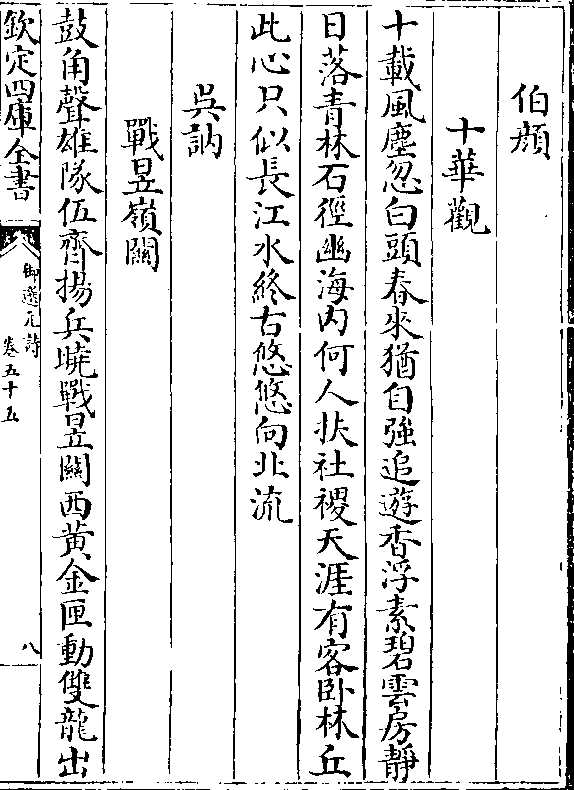 伯顔
十華觀
十載風塵忽白頭春來猶自強追遊香浮素碧雲房靜
日落青林石徑幽海内何人扶社稷天涯有客卧林丘
此心只似長江水終古悠悠向北流
吳訥
戰昱嶺關
鼓角聲雄隊伍齊揚兵曉戰昱關西黄金匣動雙龍出
欽定四庫全書
御選元詩
卷五十五
八